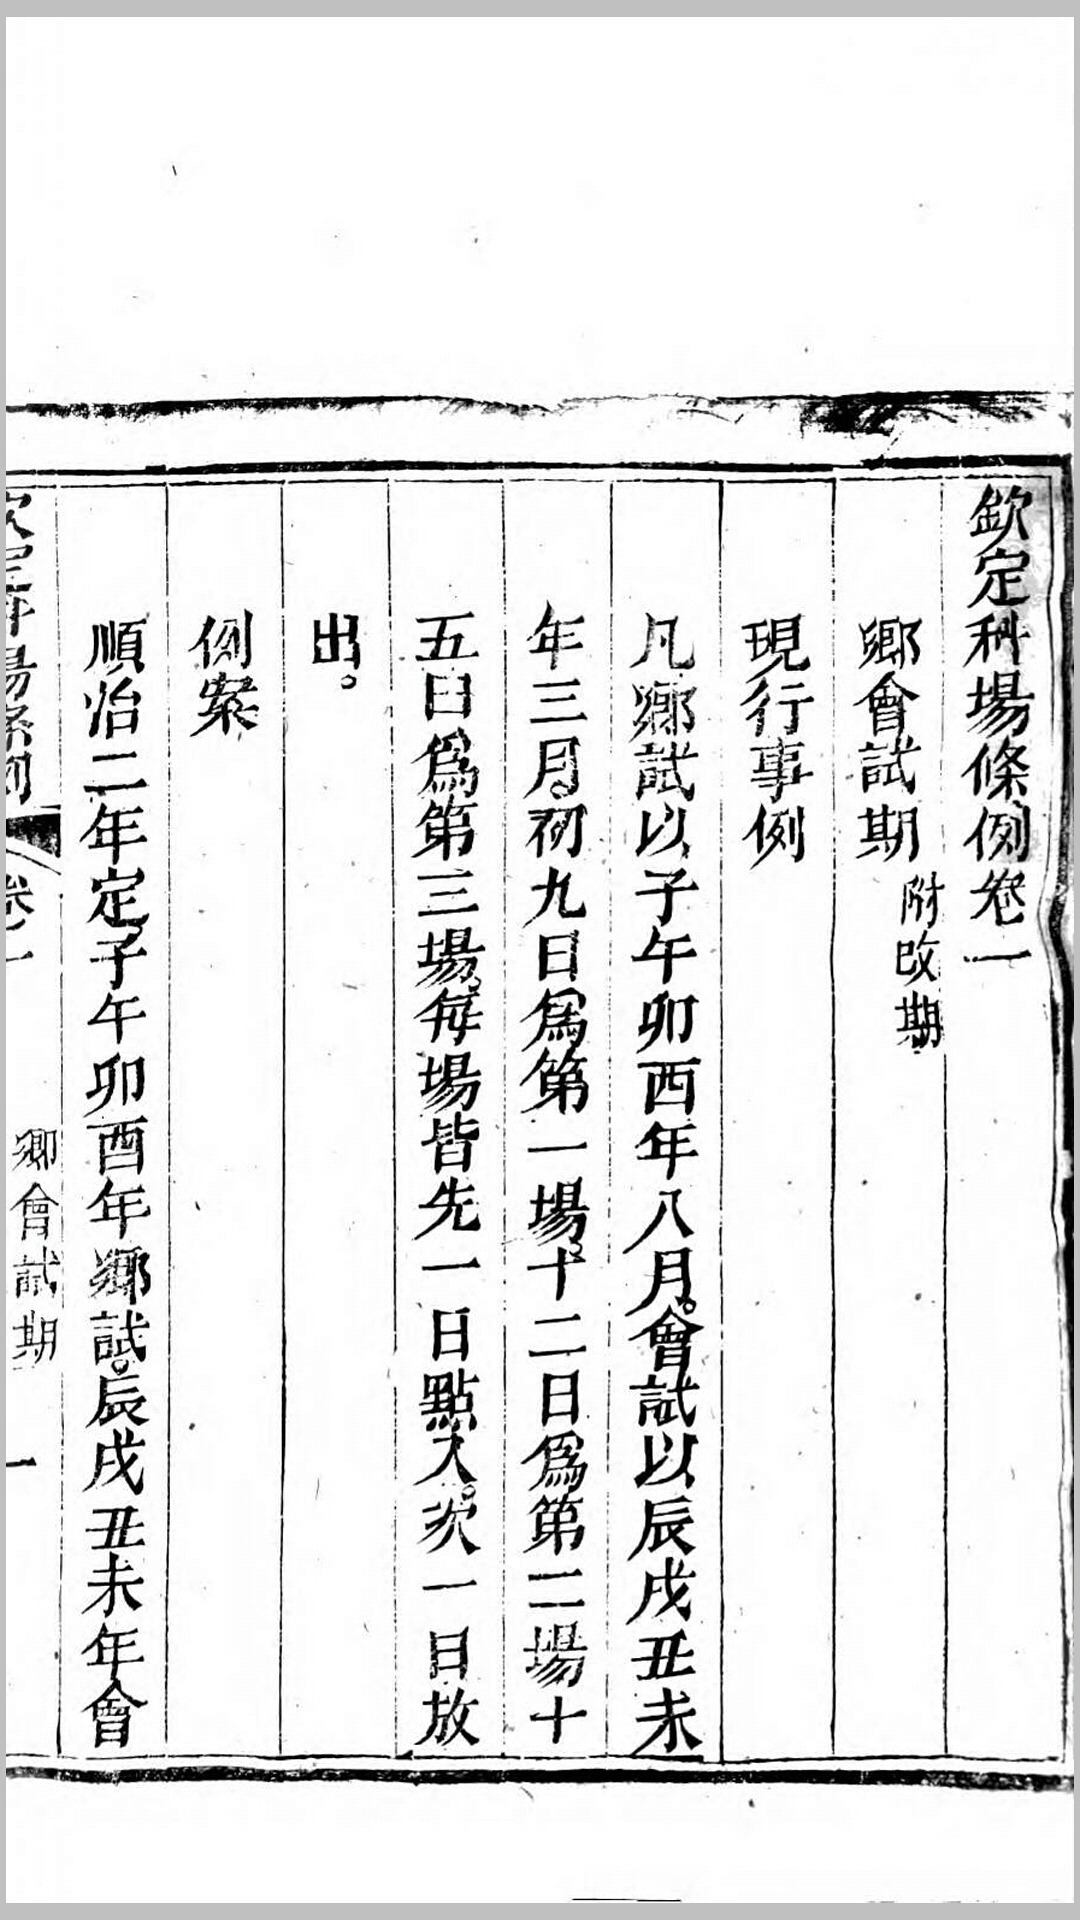 欽定科場條例卷一
鄉會試期 附改期
現行事例
凡鄉試以子午卯酉年八月。會試以辰戌丑未
年三月。初九日爲第一場。十二日爲第二場十
五日爲第三場。每場皆先一日點入。次一日放
出。
例案
順治二年定子午卯酉年鄉試。辰戌丑未年會
欽定科場條例 卷一 鄉會試期 一